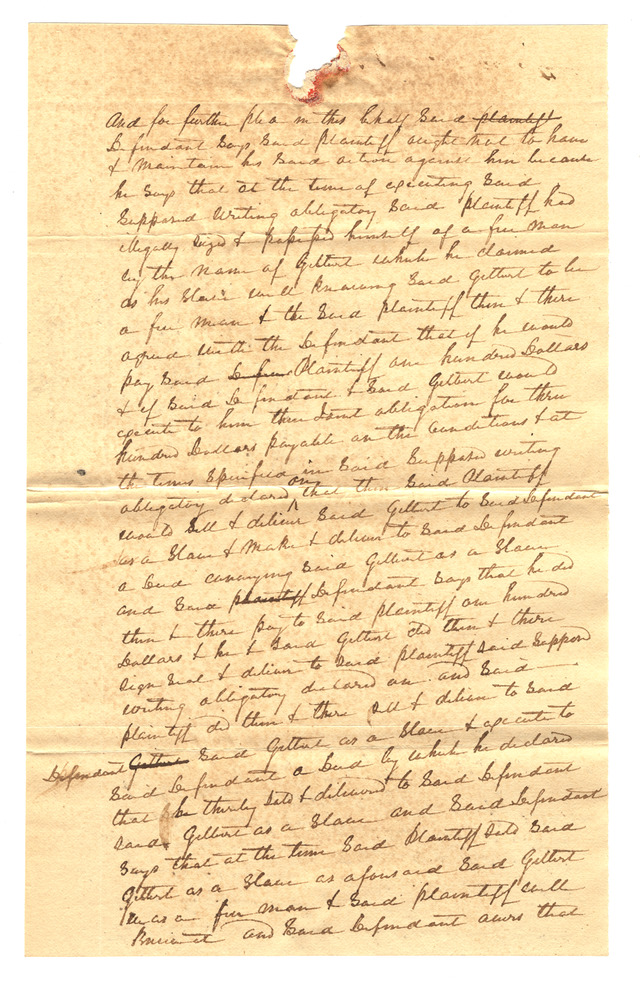 And for further plea in this behalf Said plaintiff
Defendant Says Said Plaintiff ought not to have
& maintain his Said action against him because
he Says that at the time of executing Said
Supposed writing obligatory Said plaintiff had
illegally Sized & possessed himself of a free man
by the name of Gilbert which he claimed
as his Slave well knowing Said Gilbert to be
a free man & the Said plaintiff then & there
agreed with the Defendant that if he would
pay Said Plaintiff one hundred Dollars
& if Said Defendant & Said Gilbert would
execute to him their Joint obligation for three
hundred Dollars payable on the conditions & at
the times Specified in Said Supposed writing
obligatory declared on that then Said Plaintiff
would Sell & deliver Said Gilbert to Said Defendant
as a Slave & make & deliver to Said Defendant
a Deed conveying Said Gilbert as a Slave
and Said plaintiff Defendant Says that he did
then & there pay to Said plaintiff one hundred
Dollars & he & Said Gilbert did then & there
Sign Seal & deliver to Said plaintiff Said Suppod
writing obligatory declared on and Said
plaintiff did then & there Sell & deliver to Said
Defendant Gilbert Said Gilbert as a Slave & execute to
Said Defendant a Deed by which he declared
that he thereby Sold & delivered to Said Defendant
Said Gilbert as a Slave and Said Defendant
Says that at the time Said Plaintiff Sold Said
Gilbert as a Slave as aforesaid Said Gilbert
was a free man & Said plaintiff well
knew it and Said Defendant avers that